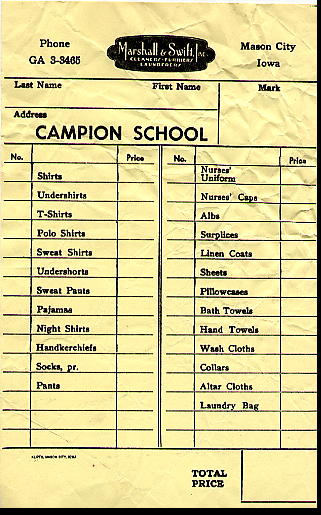 Phone
GA 3-3465
Marshall & Swift, Inc.
CLEANERS-FURRIERS
LAUNDERERS
Mason City
Iowa
Last Name First Name Mark
Address
CAMPION SCHOOL
No. Price No. Price
Shirts
Undershirts
T-Shirts
Polo Shirts
Sweat Shirts
Undershorts
Sweat Pants
Pajamas
Night Shirts
Handkerchiefs
Socks, pr.
Pants
Nurses'
Uniform
Nurses' Caps
Albs
Surplices
Linen Coats
Sheets
Pillowcases
Bath Towels
Hand Towels
Wash Cloths
Collars
Altar Cloths
Laundry Bag
MASON CITY, IOWA
TOTAL
PRICE